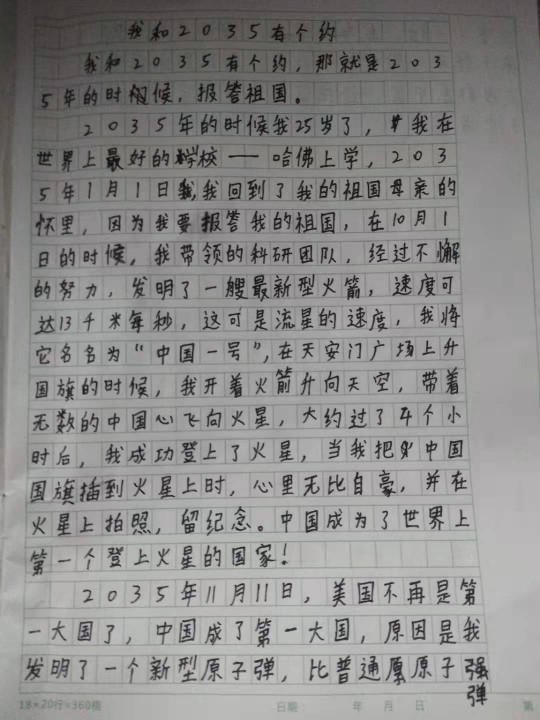 我和2035有个约
我和2035有个约，那就是203
5年的时候，报答祖国。
2035年的时候我25岁了，我在
世界上最好的学校——哈佛上学，203
5年1月1日我回到了我的祖国母亲的
怀里，因为我要报答我的祖国，在10月1
日的时候，我带领的科研团队，经过不懈
的努力，发明了一艘最新型火箭，速度可
达13千米每秒，这可是流星的速度，我将
它名名为“中国一号”，在天安门广场上升
国旗的时候，我开着火箭升向天空，带着
无数的中国心飞向火星，大约过了4个小
时后，我成功登上了火星，当我把中国
国旗插到火星上时，心里无比自豪，并在
火星上拍照，留纪念。中国成为了世界上
第一个登上火星的国家！
2035年11月11日，美国不再是第
一大国了，中国成了第一大国，原因是我
发明了一个新型原子弹，比普通原子强
弹
18×20行=360格
日期： 年 月 日
第